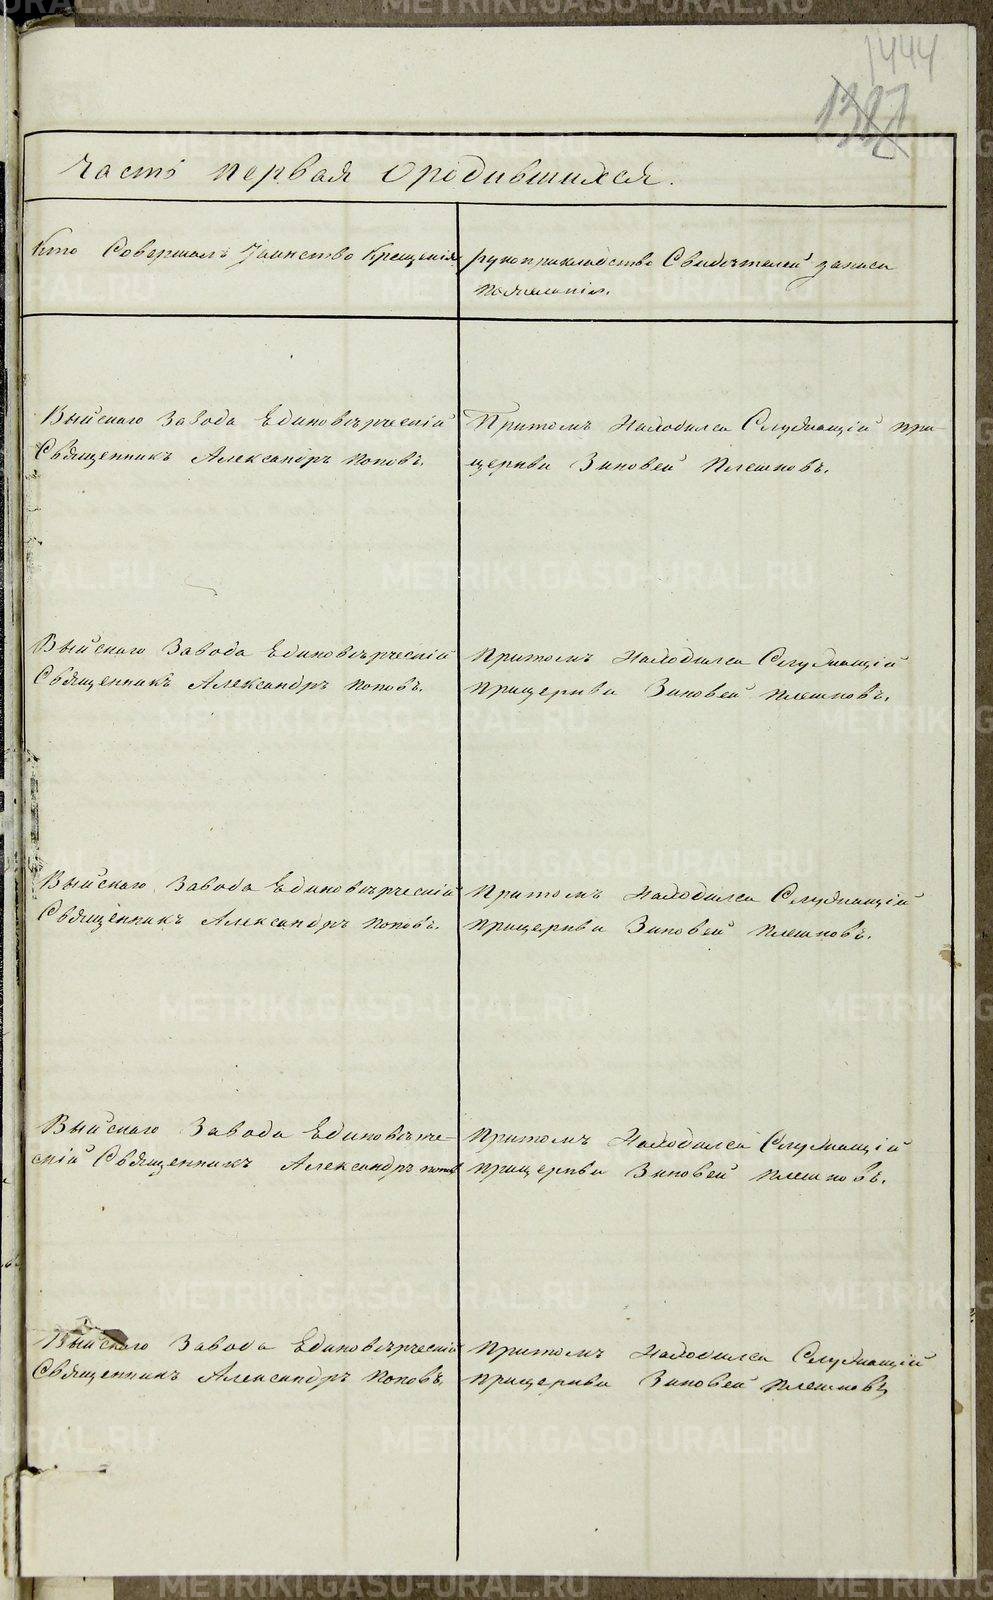 1444
1387
часть первая о родившихся.
Кто Совершалъ Таинство Крещенія
рукоприкладство Свидѣтелей записи
по желанію.
Выйскаго Завода Единовѣрческій
Священникъ Александръ Поповъ.
Притомъ Находился Служащій при
церкви Зиновей Плешковъ.
Выйскаго Завода Единовѣрческій
Священникъ Александръ Поповъ.
Притомъ Находился Служащій
прицеркви Зиновей Плешковъ.
Выйскаго Завода Единовѣрческій
Священникъ Александръ Поповъ.
Притомъ Находился Служащій
прицеркви Зиновей Плешковъ.
Выйскаго Завода Единовѣрче-
скій Священникъ Александръ Поповъ
Притомъ Находился Служащій
прицеркви Зиновей Плешковъ.
Выйскаго Завода Единовѣрческій
Священникъ Александръ Поповъ.
Притомъ Находился Служащій
прицеркви Зиновей Плешковъ
METRIKI.GASO-URAL.RU